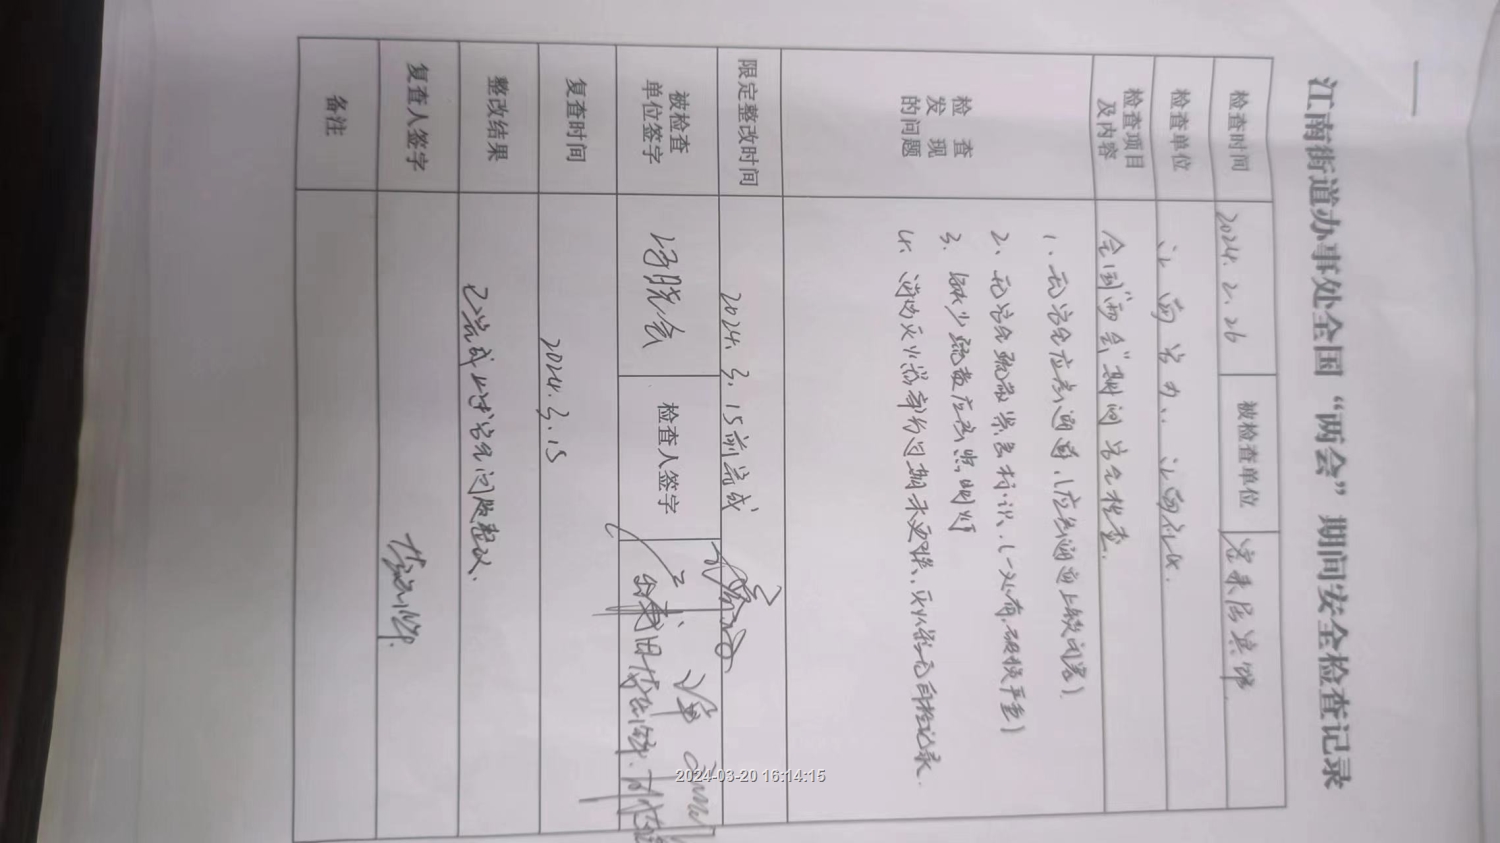 江南街道办事处全国“两会”期间安全检查记录
检查时间 2024.2.26 被检查单位 宾
检查单位 江南安办、江南社区
检查项目及内容 全国“两会”期间安全检查
检查发现的问题
1、无安全应急通道（应急通道上锁闭塞）
2、无安全疏散紧急标识、（一处有，破损严重）
3、缺少疏散应急照明灯
4、消防灭火器部分过期未更换、灭火器无月检记录.
限定整改时间 2024.3.15前完成
被检查单位签字 检查人签字
复查时间 2024.3.15
整改结果 已完成上述安全问题整改.
复查人签字
备注
2024-03-20 16:14:15